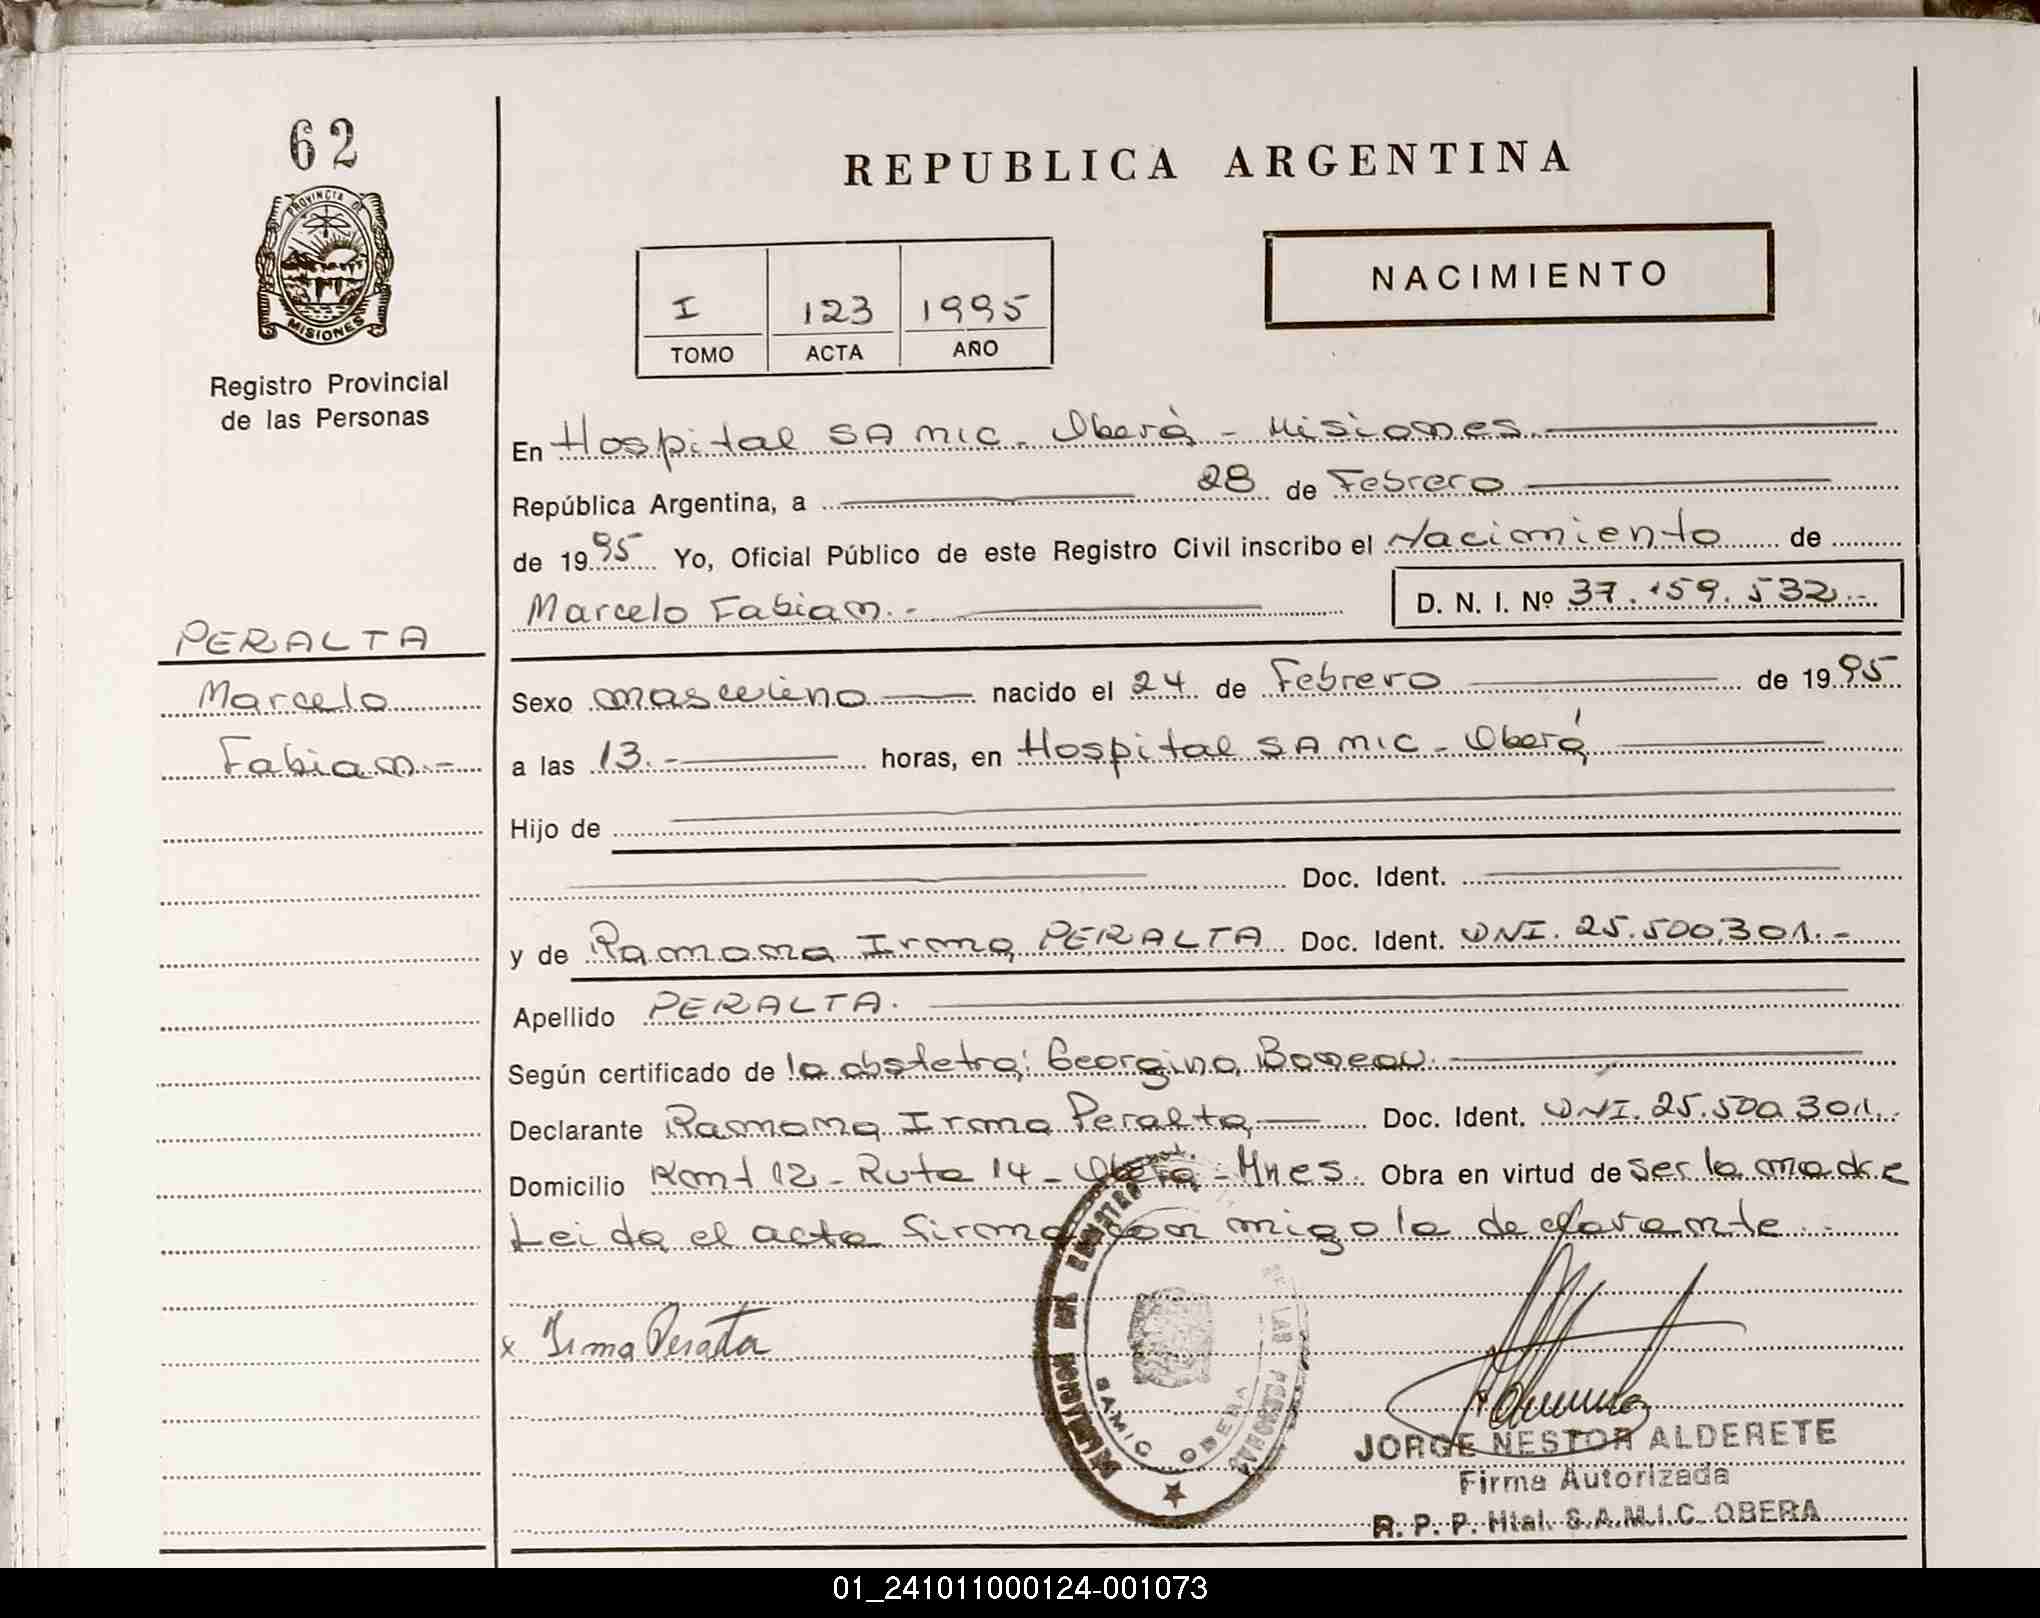 62
PROVINCIA DE
MISIONES
Registro Provincial
de las Personas
REPUBLICA ARGENTINA
NACIMIENTO
I 123 1995
TOMO ACTA AÑO
En Hospital SAMIC - Oberá - Misiones
República Argentina, a 28 de Febrero
de 1995 Yo, Oficial Público de este Registro Civil inscribo el Nacimiento de
Marcelo Fabian.- D. N. I. Nº 37.159.532.-
PERALTA
Marcelo
Fabian.-
Sexo masculino nacido el 24 de Febrero de 1995
a las 13.- horas, en Hospital SAMIC - Oberá
Hijo de
Doc. Ident.
y de Ramona Irma PERALTA Doc. Ident. DNI. 25.500.301.-
Apellido PERALTA.
Según certificado de la obstetra: Georgina
Declarante Ramona Irma Peralta Doc. Ident. DNI. 25.500.301.-
Domicilio Km 12 - Ruta 14 - Oberá - Mnes. Obra en virtud de ser la madre
Leida el acta firma con migo la declarante.-
x Irma Peralta
DE LAS PERSONAS
SAMIC OBERA
JORGE NESTOR ALDERETE
Firma Autorizada
R. P. P. Htal. S.A.M.I.C. OBERA
01_241011000124-001073